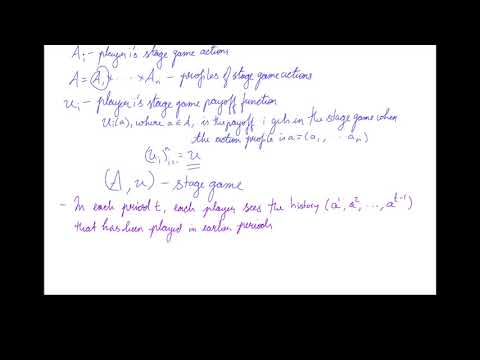 Ai - player i's stage game actions
A = A1 x ... x An - profiles of stage game actions
ui - player i's stage game payoff function
ui(a), where a ∈ A, is the payoff i gets in the stage game when
the action profile is a = (a1, ... an)
(ui)ⁿi=1 = u
(A, u) - stage game
- In each period t, each player sees the history (a¹, a², ..., aᵗ⁻¹)
that has been played in earlier periods